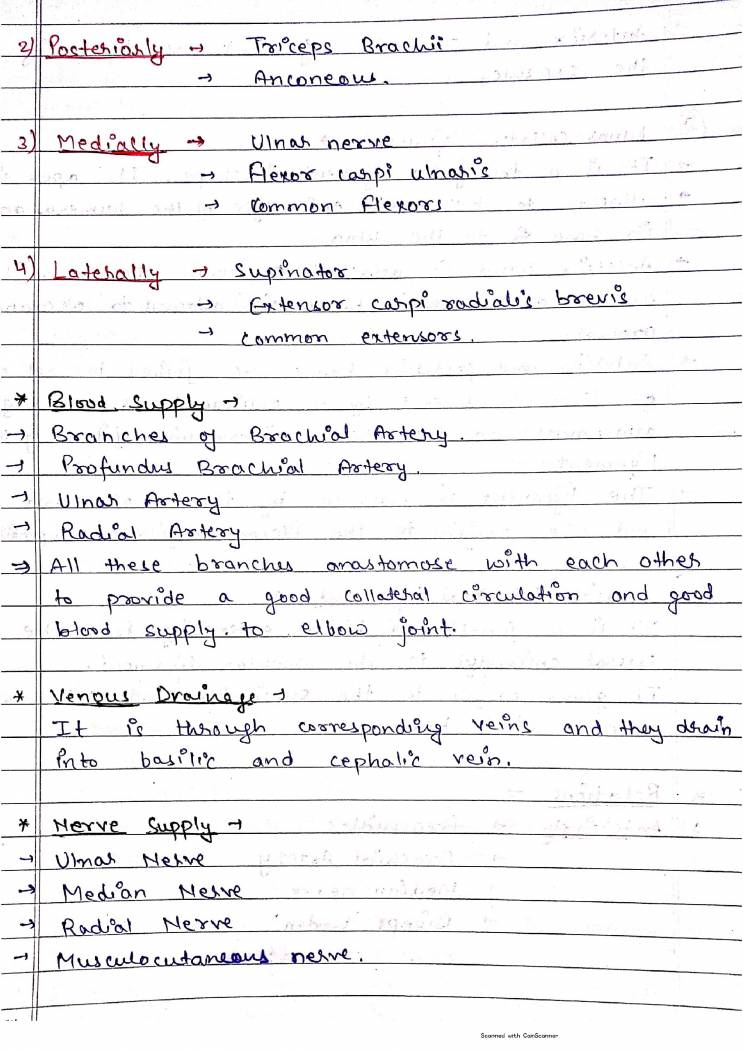 2) Posteriorly → Triceps Brachii
→ Anconeous.
3) Medially → Ulnar nerve
→ Flexor carpi ulnaris
→ Common flexors
4) Laterally → Supinator
→ Extensor carpi radialis brevis
→ common extensors.
* Blood Supply →
→ Branches of Brachial Artery.
→ Profundus Brachial Artery.
→ Ulnar Artery
→ Radial Artery
⇒ All these branches anastomose with each other
to provide a good collateral circulation and good
blood supply to elbow joint.
* Venous Drainage →
It is through corresponding veins and they drain
into basilic and cephalic vein.
* Nerve Supply →
→ Ulnar Nerve
→ Median Nerve
→ Radial Nerve
→ Musculocutaneous nerve.
Scanned with CamScanner